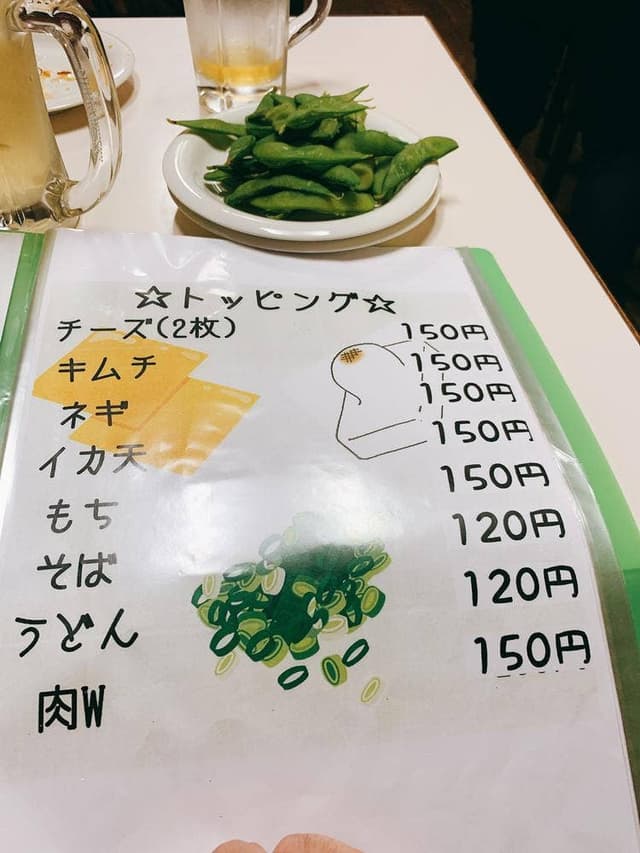 ☆トッピング☆
チーズ(2枚) 150円
キムチ 150円
ネギ 150円
イカ天 150円
もち 150円
そば 120円
うどん 120円
肉W 150円